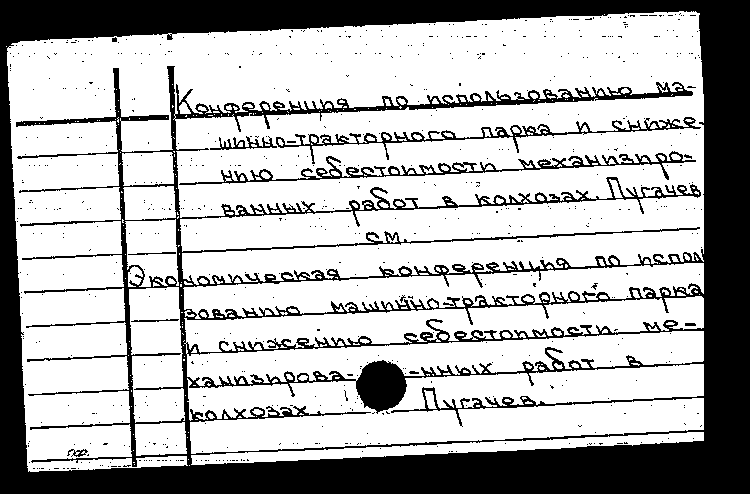 Конференция по использованию ма-
шинно-тракторного парка и сниже-
нию себестоимости механизиро-
ванных работ в колхозах. Пугачев
см.
Экономическая конференция по исполь
зованию машинно-тракторного парка
и снижению себестоимости ме-
ханизирова- -нных работ в
колхозах. Пугачев.
пер.